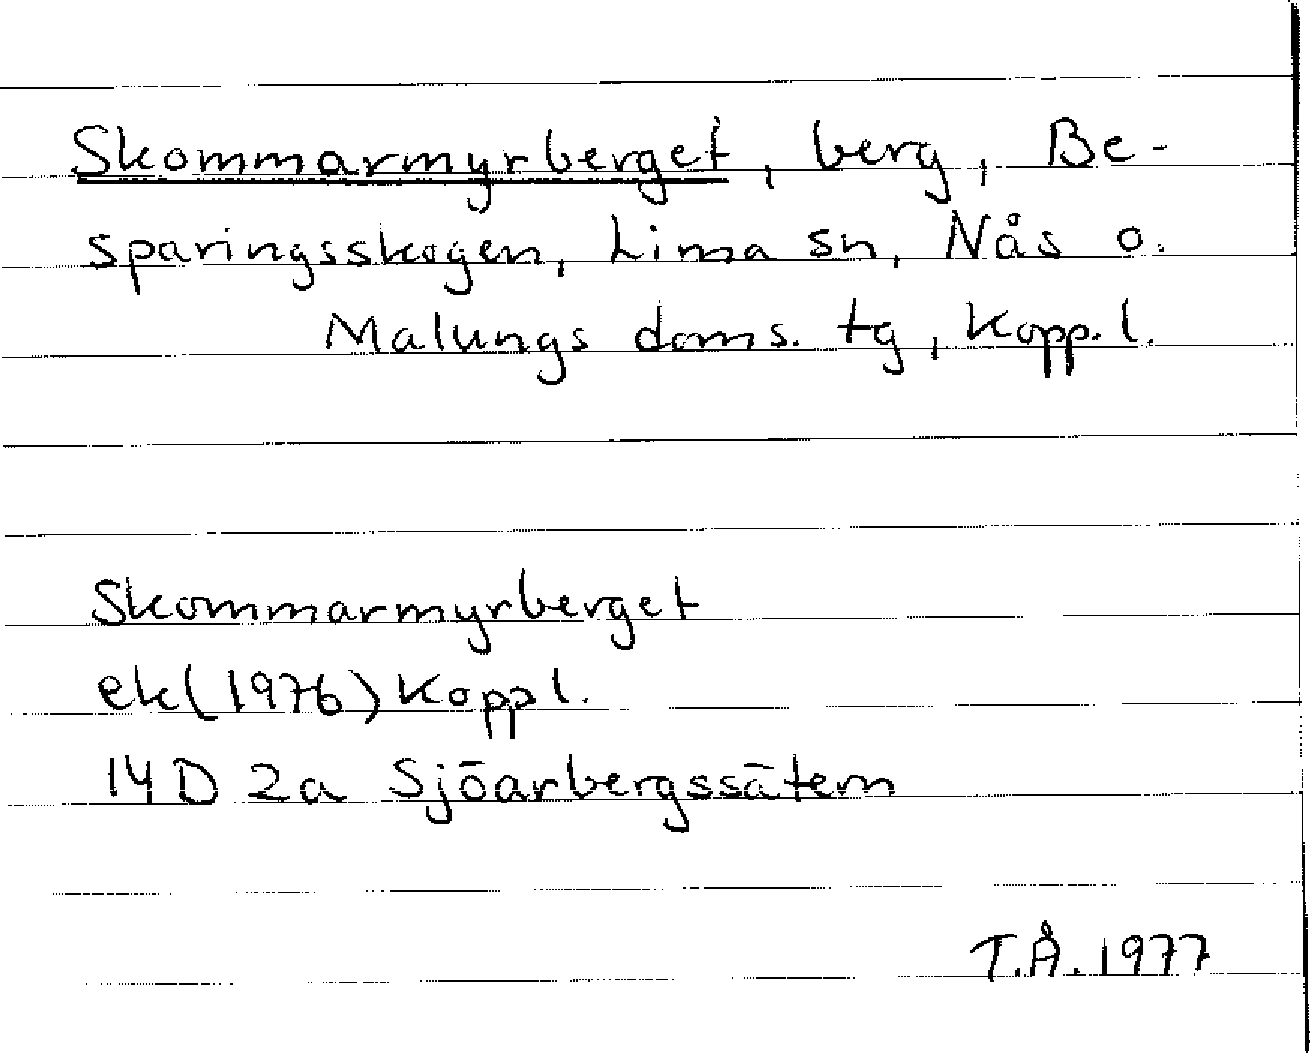 Skommarmyrberget, berg, Be-
sparingsskogen, Lima sn, Nås o.
Malungs doms. tg, Kopp. l.
Skommarmyrberget
ek(1976) Kopp l.
14 D 2a Sjöarbergssätern
T.Å. 1977